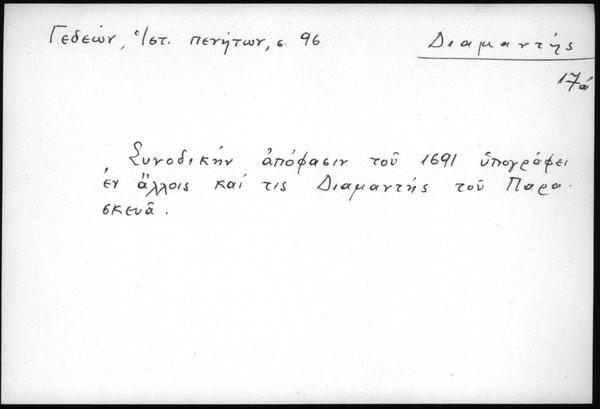 Γεδεών, Ἱστ. πενήτων, σ. 96
Διαμαντής
17α
Συνοδικήν ἀπόφασιν τοῦ 1691 ὑπογράφει
ἐν ἄλλοις καί τις Διαμαντής τοῦ Παρα-
σκευᾶ.